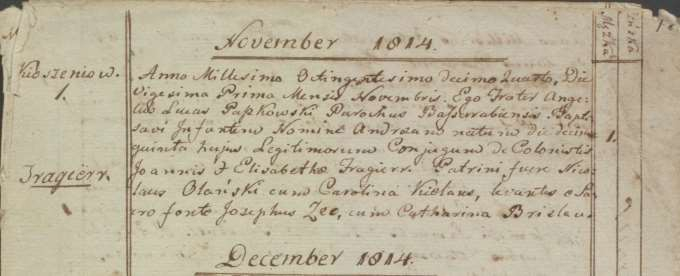 November 1814.
Męzka
Żińska
Kuoszeniow.
1.
Anno Millesimo Octingentesimo decimo quarto, Die
Vigesima Prima Mensis Novembris. Ego Frater Ange-
lus Lucas Papkowski Parochus Bassarabiensis Bapti-
savi Infantem Nomine Andream natum die decim
quinta hujus Legitimorum Conjugum de Colonistis
Joannis & Elisabethæ Tragierr. Patrini fuere Nico-
laus Olański cum Carolina Kielaus, levantes e Sa-
cro fonte Josephus Zee, cum Catharina Brislau.
1.
Tragierr.
December 1814.